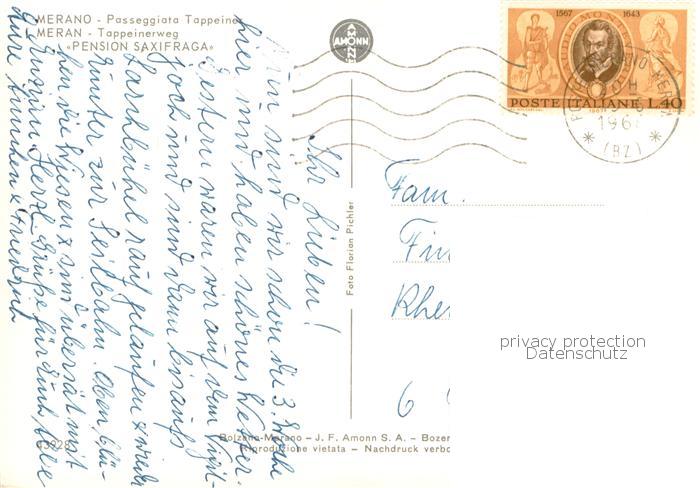 MERANO - Passeggiata Tappeiner
MERAN - Tappeinerweg
«PENSION SAXIFRAGA»
AMONN
Ihr Lieben!
Nun sind wir schon die 3. Woche
hier und haben schönes Wetter.
Gestern waren wir auf dem Vigil-
joch und sind dann bis aufs
Larchbühel rauf gelaufen & wieder
runter zur Seilbahn. Oben blü-
hen die Wiesen & sind übersät mit
Enzian. Herzl. Grüße für Euch, liebe
Eure
Foto Florian Pichler
1567 1643
POSTE ITALIANE L. 40
196
(BZ)
Fam.
Fin
Rhe
6
privacy protection
Datenschutz
43928
Bolzano-Merano - J. F. Amonn S. A. - Bozen
Riproduzione vietata - Nachdruck verbo